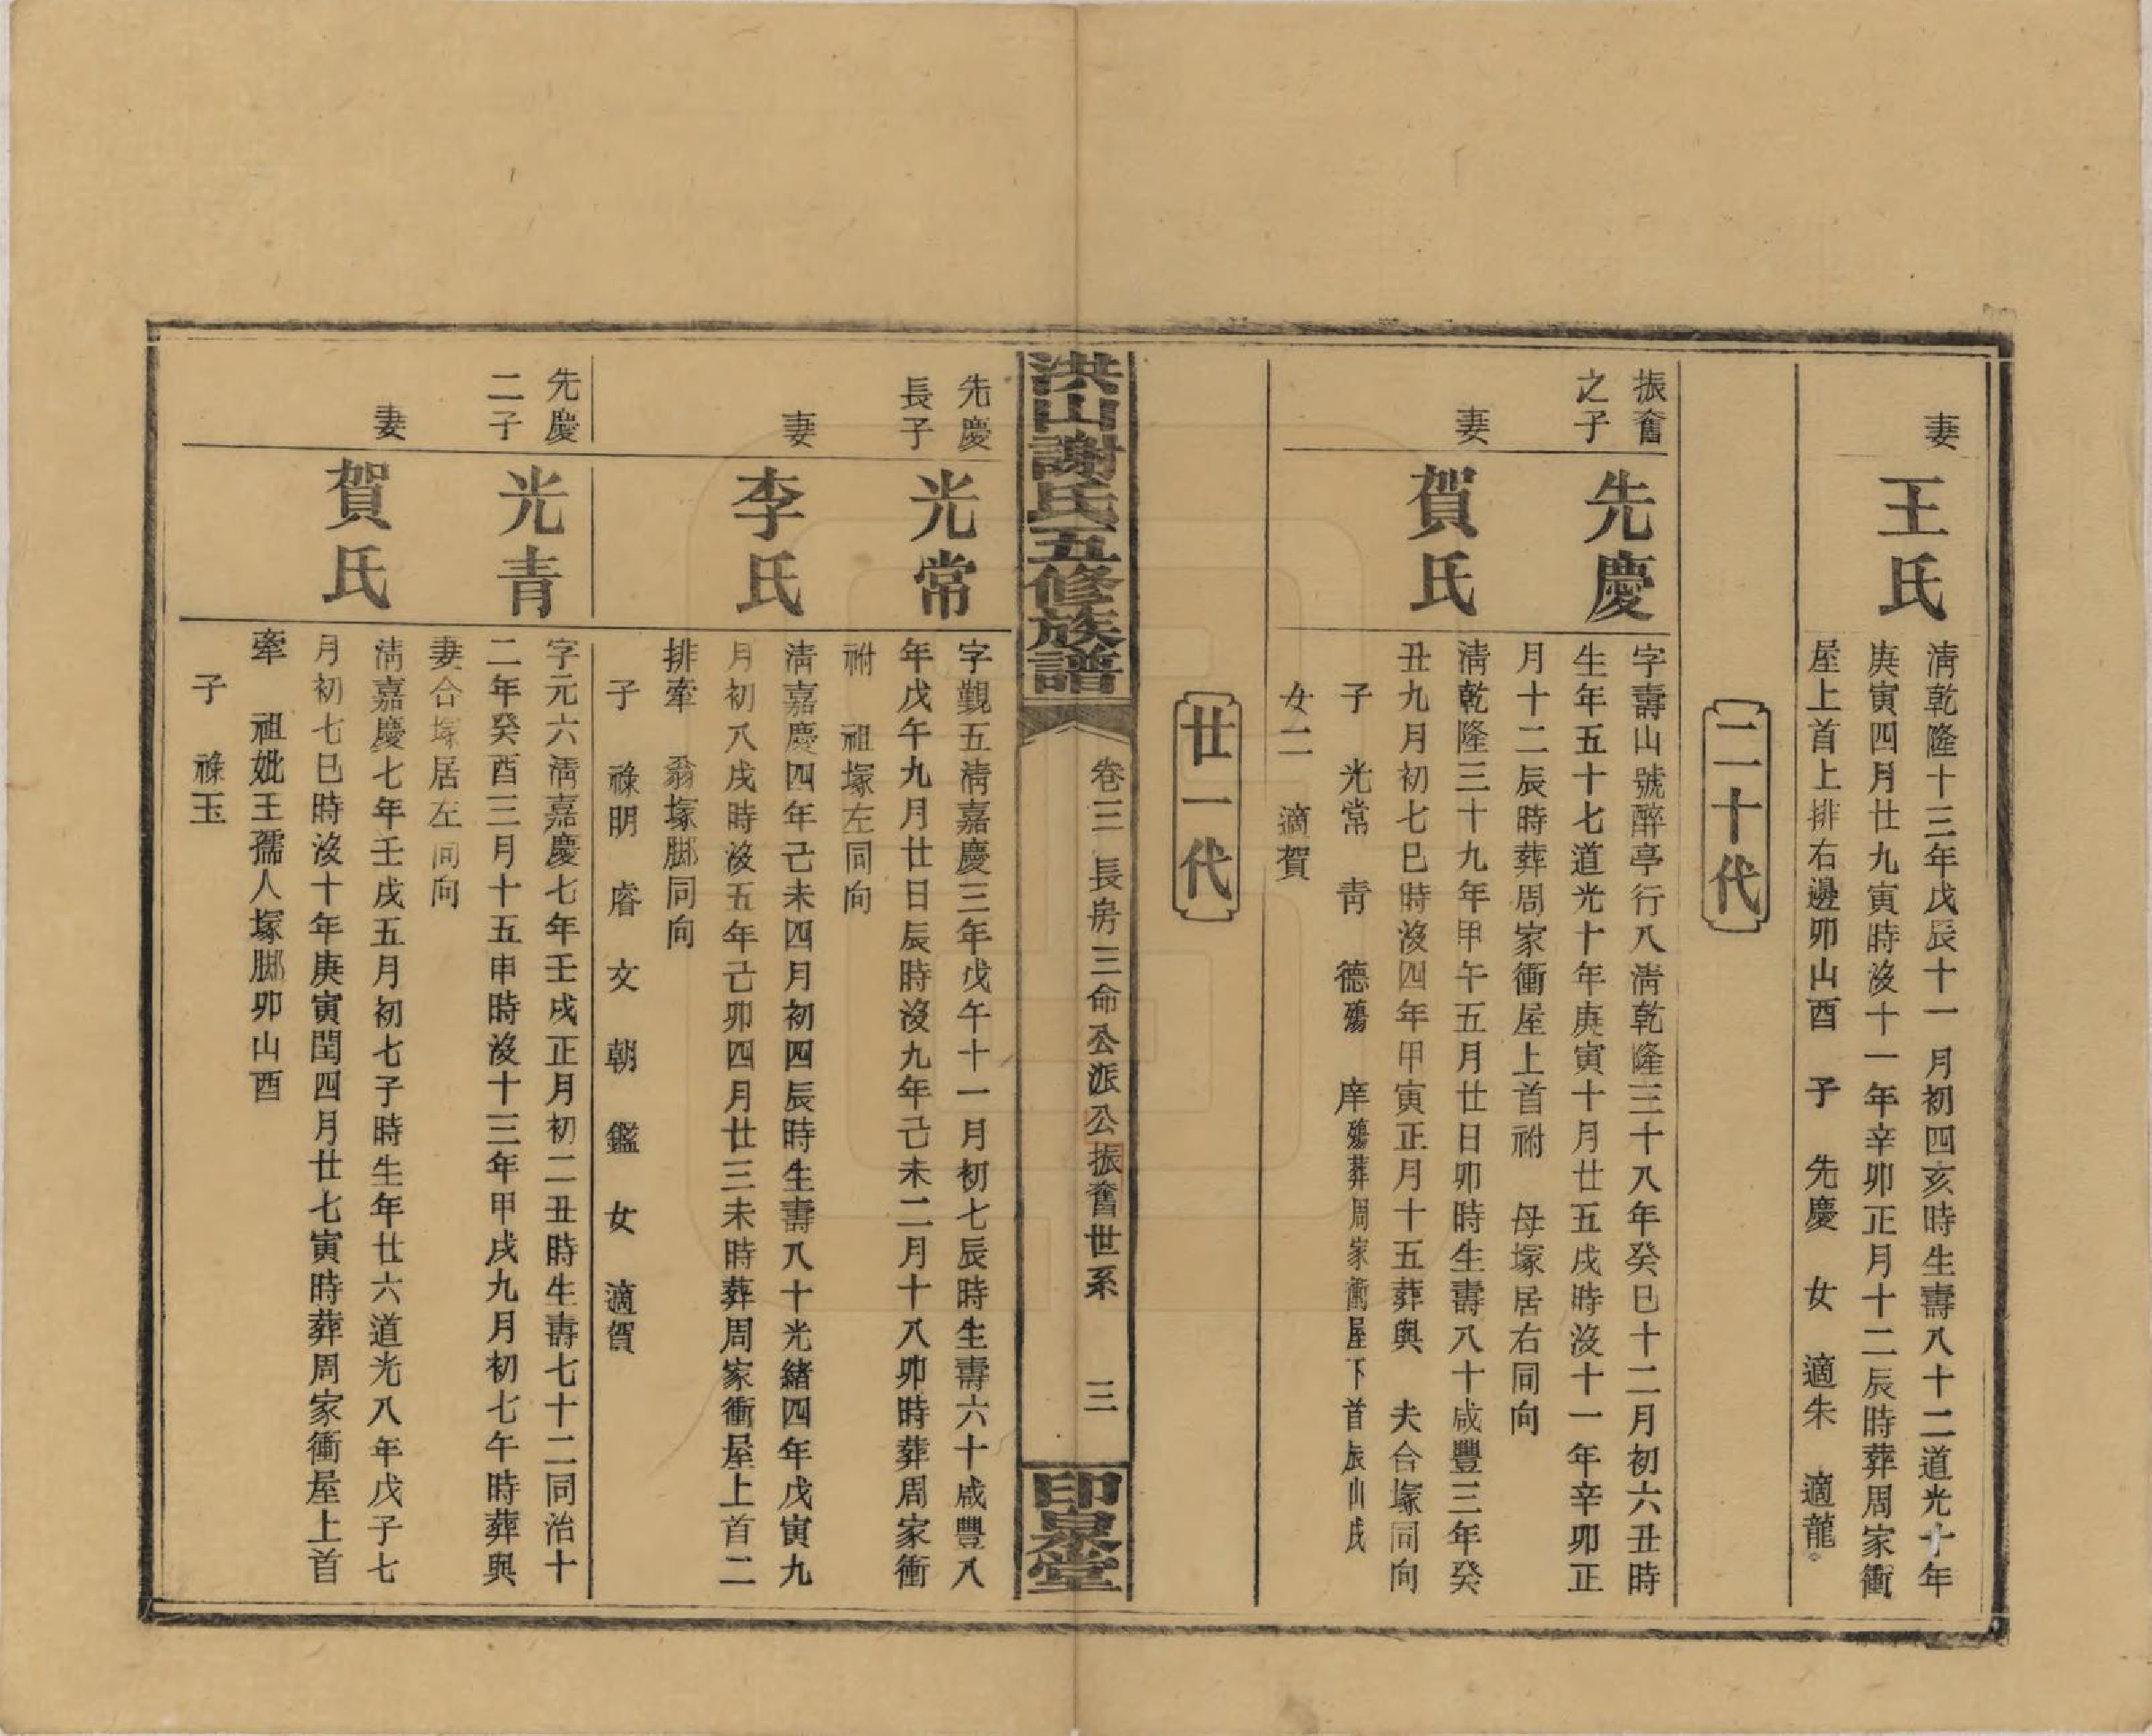 妻
王氏
淸乾隆十三年戊辰十一月初四亥時生壽八十二道光十年
庚寅四月廿九寅時沒十一年辛卯正月十二辰時葬周家衝
屋上首上排右邊卯山酉 子 先慶 女 適朱 適龍
二十代
振奮
之子
先慶
字壽山號醉亭行八淸乾隆三十八年癸巳十二月初六丑時
生年五十七道光十年庚寅十月廿五戌時沒十一年辛卯正
月十二辰時葬周家衝屋上首祔 母塚居右同向
妻
賀氏
淸乾隆三十九年甲午五月廿日卯時生壽八十咸豐三年癸
丑九月初七巳時沒四年甲寅正月十五葬與 夫合塚同向
子 光常 靑 德殤 庠殤葬周家衝屋下首辰山戌
女二 適賀
廿一代
洪山謝氏五修族譜
卷三 長房三命公派公振奮世系 三
印泉堂
先慶
長子
光常
字覲五淸嘉慶三年戊午十一月初七辰時生壽六十咸豐八
年戊午九月廿日辰時沒九年己未二月十八卯時葬周家衝
祔 祖塚左同向
妻
李氏
淸嘉慶四年己未四月初四辰時生壽八十光緒四年戊寅九
月初八戌時沒五年己卯四月廿三未時葬周家衝屋上首二
排牽 翁塚脚同向
子 祿明 睿 文 朝 鑑 女 適賀
先慶
二子
光青
字元六淸嘉慶七年壬戌正月初二丑時生壽七十二同治十
二年癸酉三月十五申時沒十三年甲戌九月初七午時葬與
妻合塚居左同向
妻
賀氏
淸嘉慶七年壬戌五月初七子時生年廿六道光八年戊子七
月初七巳時沒十年庚寅閏四月廿七寅時葬周家衝屋上首
牽 祖妣王孺人塚脚卯山酉
子 祿玉